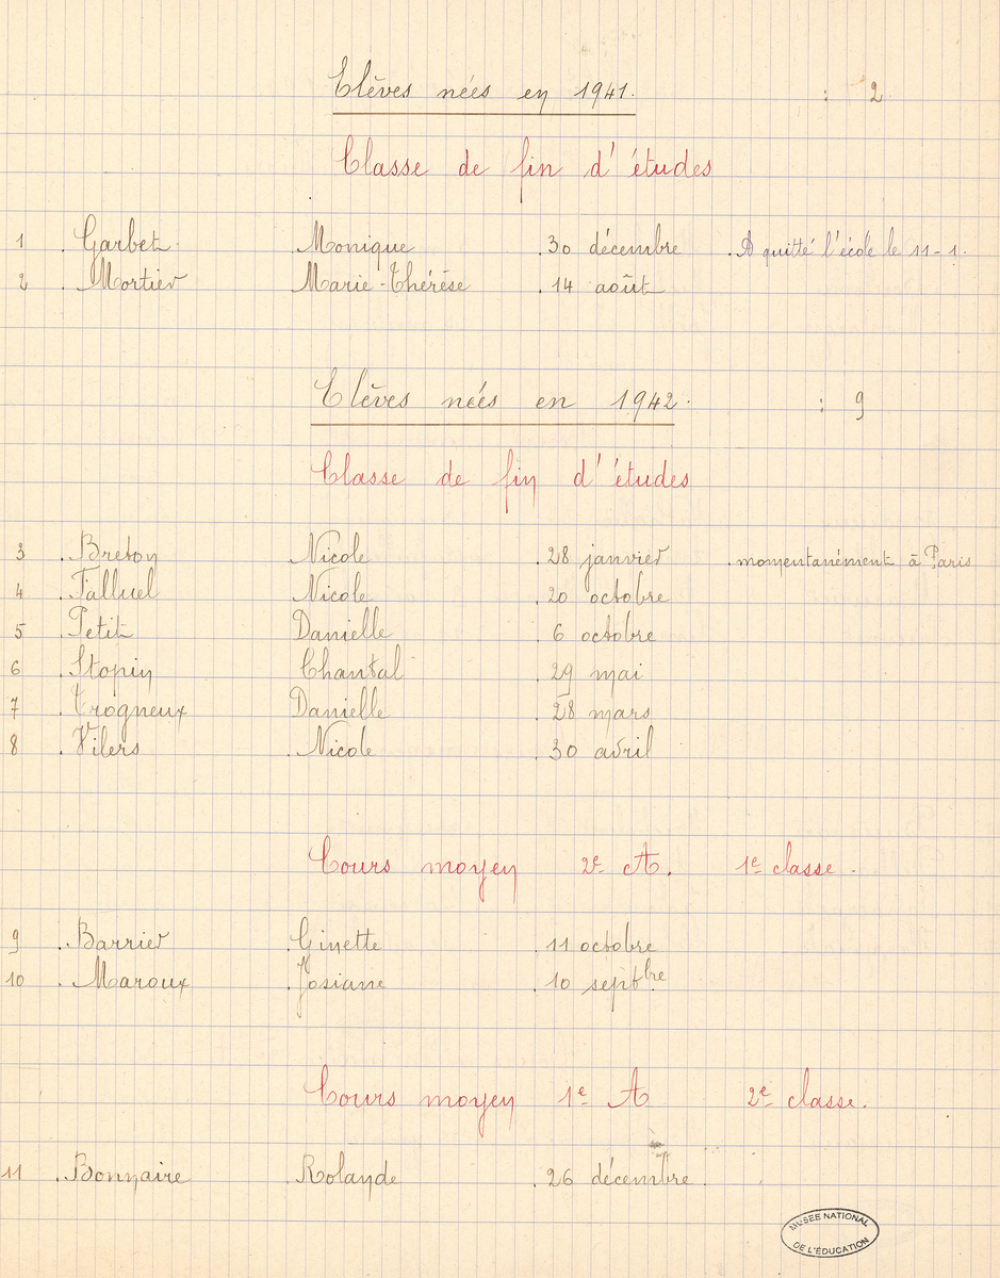 Elèves nées en 1941. : 2
Classe de fin d'études
1 . Garbet . Monique . 30 décembre . A quitté l'école le 11-1.
2 . Mortier Marie-Thérèse . 14 août
Elèves nées en 1942. : 9
Classe de fin d'études
3 . Breton Nicole . 28 janvier . momentanément à Paris
4 . Falluel Nicole . 20 octobre
5 . Petit Danielle . 6 octobre
6 . Stopin Chantal . 29 mai
7 . Trogneux Danielle . 28 mars
8 . Vilers . Nicole . 30 avril
Cours moyen 2e A. 1e classe.
9 . Barrier . Ginette . 11 octobre
10 . Maroux . Josiane . 10 septbre
Cours moyen 1e A 2e classe.
11 . Bonnaire . Rolande . 26 décembre.
MUSEE NATIONAL
DE L'ÉDUCATION